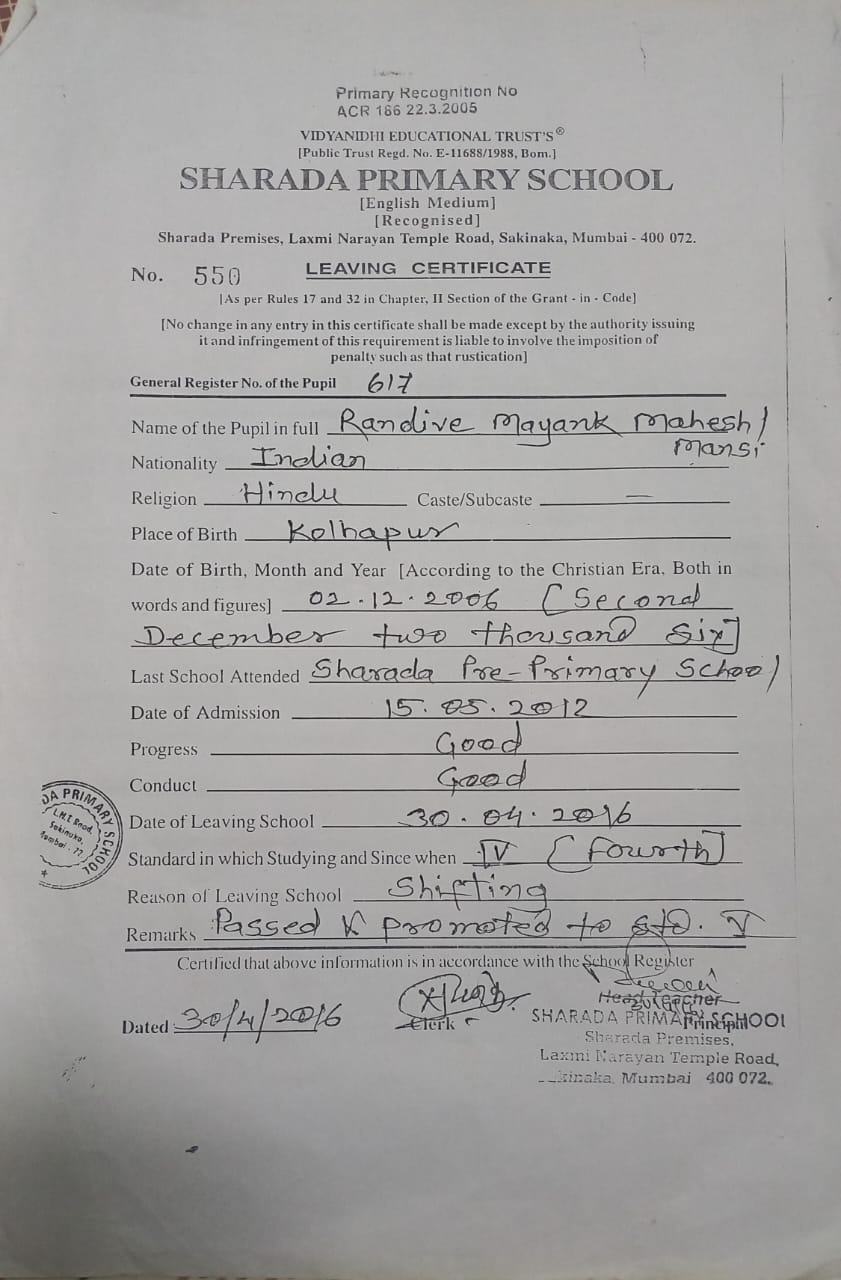 Primary Recognition No
ACR 186 22.3.2005
VIDYANIDHI EDUCATIONAL TRUST'S®
[Public Trust Regd. No. E-11688/1988, Bom.]
SHARADA PRIMARY SCHOOL
[English Medium]
[Recognised]
Sharada Premises, Laxmi Narayan Temple Road, Sakinaka, Mumbai - 400 072.
No. 550 LEAVING CERTIFICATE
[As per Rules 17 and 32 in Chapter, II Section of the Grant - in - Code]
[No change in any entry in this certificate shall be made except by the authority issuing
it and infringement of this requirement is liable to involve the imposition of
penalty such as that rustication]
General Register No. of the Pupil 617
Name of the Pupil in full Randive Mayank Mahesh/
Mansi
Nationality Indian
Religion Hindu Caste/Subcaste —
Place of Birth Kolhapur
Date of Birth, Month and Year [According to the Christian Era, Both in
words and figures] 02.12.2006 [Second
December two thousand six]
Last School Attended Sharada Pre-Primary School
Date of Admission 15.05.2012
Progress Good
Conduct Good
DA PRIMARY SCHOOL
Road,
Sakinaka,
Date of Leaving School 30.04.2016
Standard in which Studying and Since when IV [Fourth]
Reason of Leaving School Shifting
Remarks Passed & promoted to std. V
Certified that above information is in accordance with the School Register
Dated 30/4/2016
Clerk
Head Teacher
Principal
SHARADA PRIMARY SCHOOL
Sharada Premises,
Laxmi Narayan Temple Road,
kinaka, Mumbai 400 072.